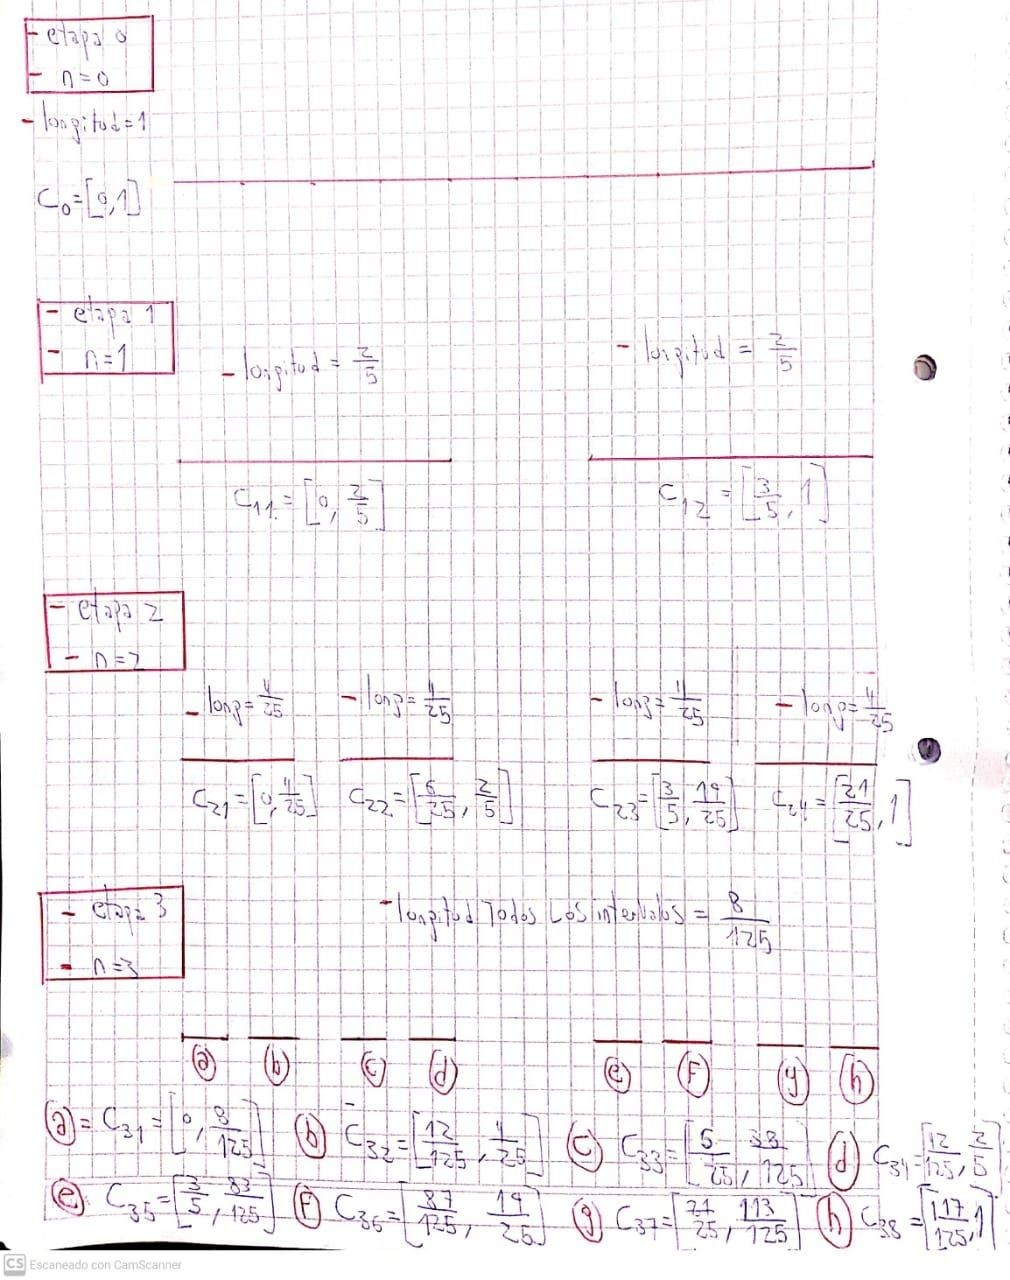 - etapa 0
- n=0
- longitud=1
C₀=[0,1]
- etapa 1
- n=1
- longitud = 2/5
- longitud = 2/5
C₁₁=[0, 2/5]
C₁₂=[3/5, 1]
- etapa 2
- n=2
- long=4/25
- long=4/25
- long=4/25
- long=4/25
C₂₁=[0, 4/25]
C₂₂=[6/25, 2/5]
C₂₃=[3/5, 19/25]
C₂₄=[21/25, 1]
- etapa 3
- n=3
- longitud Todos Los intervalos = 8/125
a b c d e f g h
a = C₃₁=[0, 8/125] b C₃₂=[12/125, 4/25] c C₃₃=[6/25, 38/125] d C₃₄=[12/125, 2/5]
e C₃₅=[3/5, 83/125] f C₃₆=[87/125, 19/25] g C₃₇=[21/25, 113/125] h C₃₈=[117/125, 1]
CS Escaneado con CamScanner